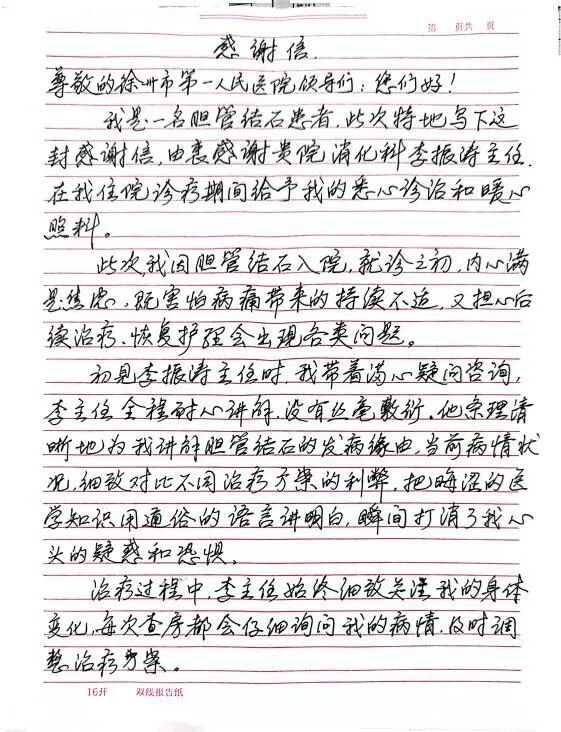 第 页共 页
感谢信.
尊敬的徐州市第一人民医院领导们：您们好！
我是一名胆管结石患者，此次特地写下这
封感谢信，由衷感谢贵院消化科李振涛主任，
在我住院诊疗期间给予我的悉心诊治和暖心
照料。
此次，我因胆管结石入院，就诊之初，内心满
是焦虑，既害怕病痛带来的持续不适，又担心后
续治疗、恢复护理会出现各类问题。
初见李振涛主任时，我带着满心疑问咨询，
李主任全程耐心讲解，没有丝毫敷衍。他条理清
晰地为我讲解胆管结石的发病缘由，当前病情状
况，细致对比不同治疗方案的利弊，把晦涩的医
学知识用通俗的语言讲明白，瞬间打消了我心
头的疑惑和恐惧。
治疗过程中，李主任始终细致关注我的身体
变化，每次查房都会仔细询问我的病情，及时调
整治疗方案。
16开 双线报告纸